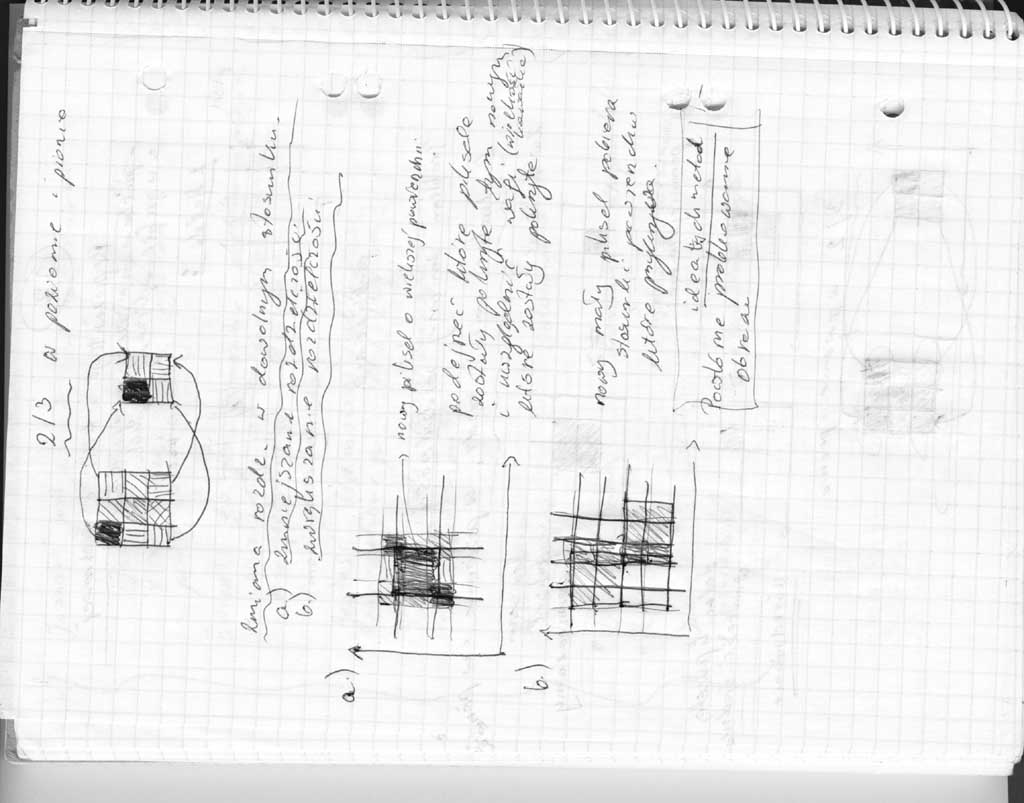 2/3 w poziomie i pionie
zmiana rozdz. w dowolnym stosunku.
a.) zmniejszanie rozdzielczości
b.) zwiększanie rozdzielczości
a.)
nowy piksel o większej powierzchni.
podejść które piksele
zostały pokryte tym nowym
i uwzględnić wagi (wielkości
które zostały pokryte
b.)
nowy mały piksel pobiera
składniki powierzchni
które przykrywa.
idea tych metod
Powtórne próbkowanie
obrazu